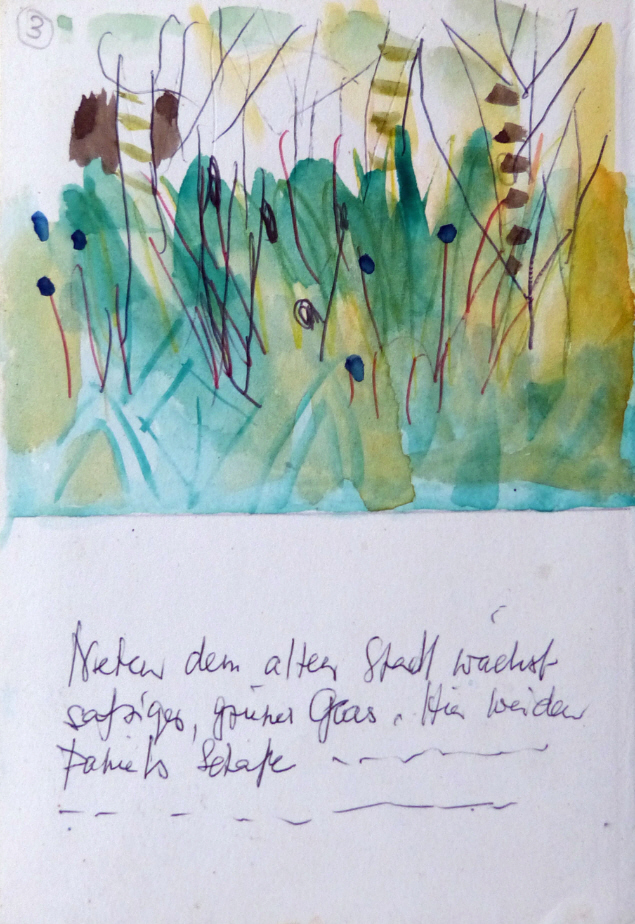 3
Neben dem alten Stadl wächst
saftiges, grünes Gras. Hier weiden
Daniels Schafe